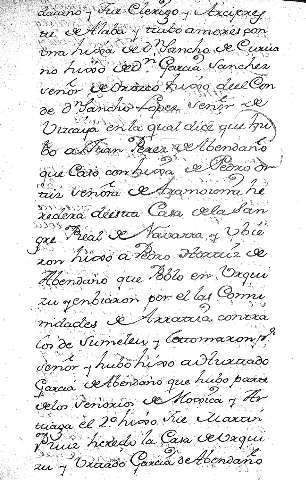 daueno y fue Clerigo y Arcipres
te de Alaba y tubo amores con
una hixa de Dn Sancho de Curia
no hixo de Dn Garcia Sanchez
señor de Orozco hixo del Con
de Dn Sancho Lopez Señor de
Vizcaya en la qual dice que hu
bo a Juan Perez de Abendaño
que Caso con hixa de Pedro Or
tiz señora de Aramaiona he
redera de esta Casa de la San
gre Real de Navarra y Vbie
ron hixo a Pedro Hortiz de
Abendaño que Poblo en Vrqui
zu y enbiaron por el las Comu
nidades de Arratia contra
los de Sumelzu y lo tomaron pr
señor y hubo hixo a Hurtado
Garcia de Abendaño que hubo parte
de los señorios de Moxica y Ar
teaga el 2º hixo fue Martin
Ruiz heredo la Casa de Vrqui
zu y Vrtado Garcia de Abendaño